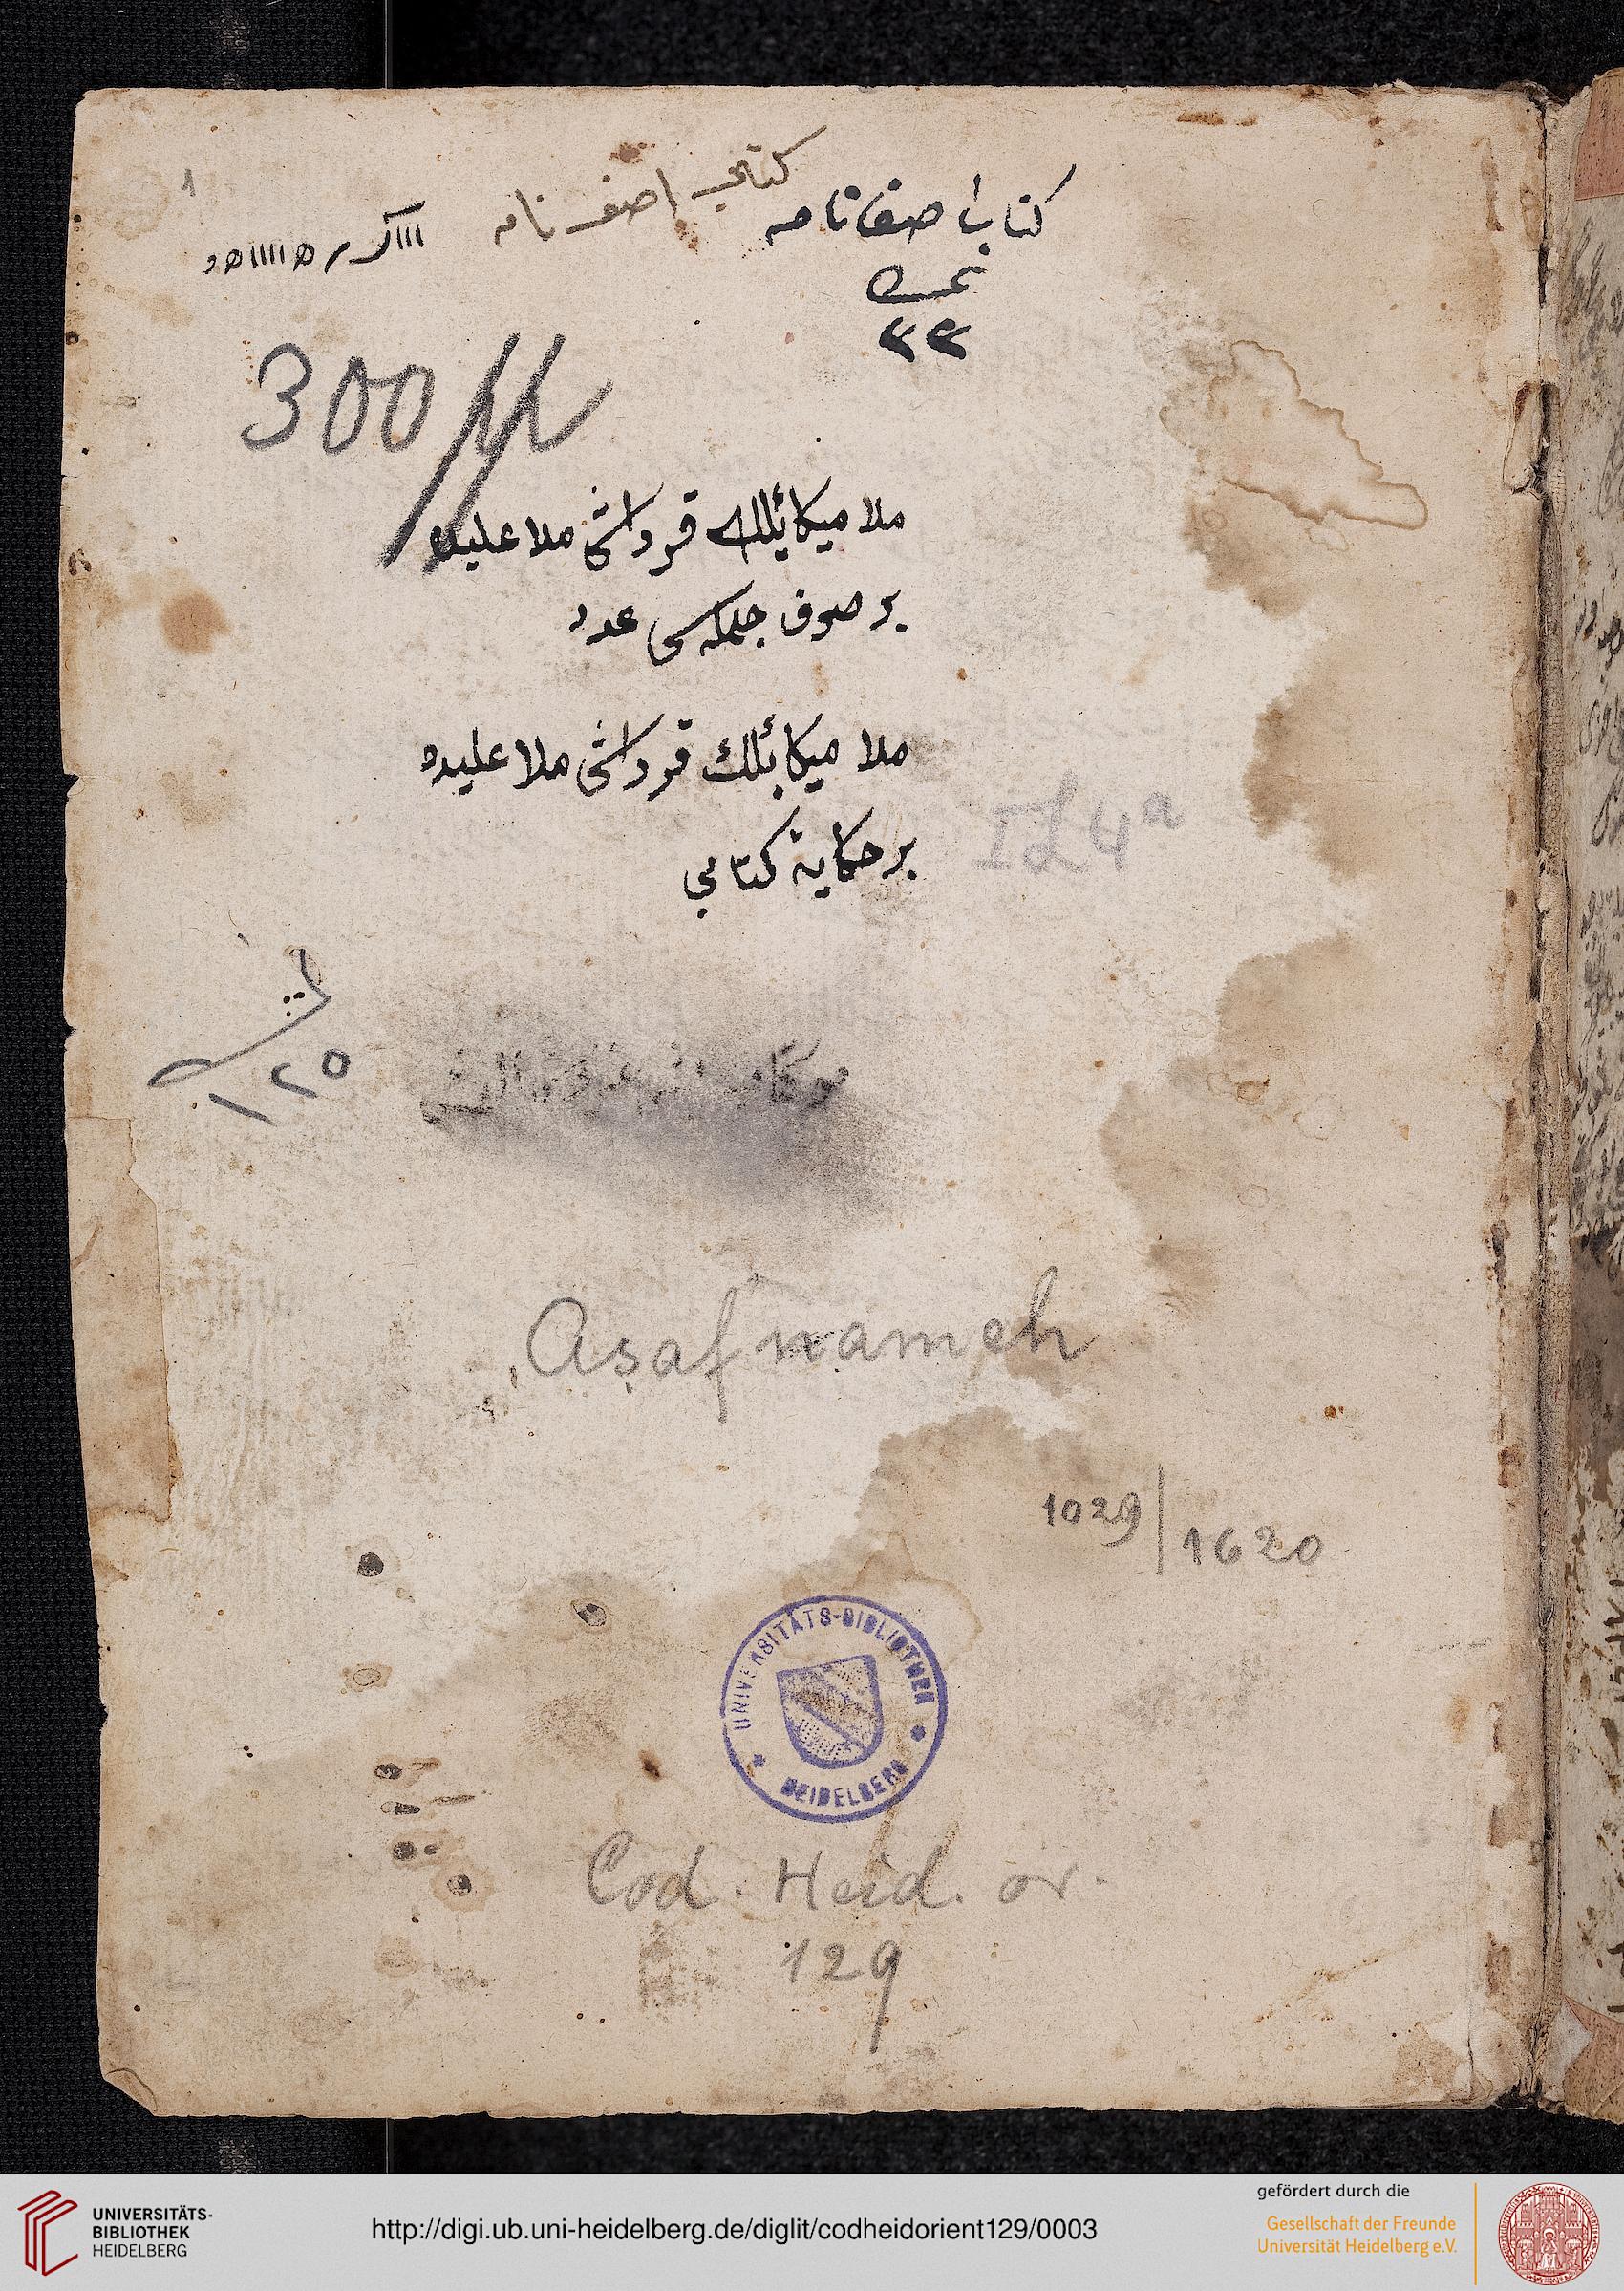 1
كتاب اصفنامه
كتاب اصفنامه
نمره
٢٣
300
ملا ميكائيلك قرداشى ملا عليده
بر صرف جلمله سى عدد
ملا ميكائيلك قرداشى ملا عليده
بر حكاية كتابي
I L 4a
١٢٥
Aṣafnameh
1029/1620
UNIVERSITÄTS-BIBLIOTHEK
HEIDELBERG
Cod. Heid. or.
129
UNIVERSITÄTS-
BIBLIOTHEK
HEIDELBERG
http://digi.ub.uni-heidelberg.de/diglit/codheidorient129/0003
gefördert durch die
Gesellschaft der Freunde
Universität Heidelberg e.V.